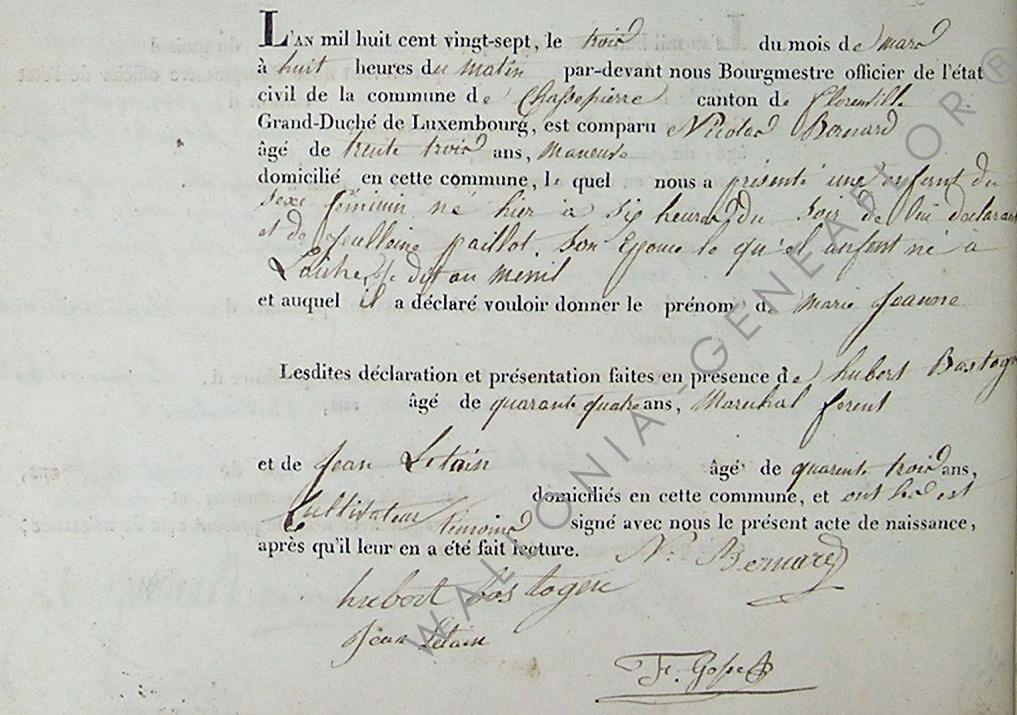 L'AN mil huit cent vingt-sept, le trois du mois de mars
à huit heures du matin par-devant nous Bourgmestre officier de l'état
civil de la commune de Chassepierre canton de Florenville
Grand-Duché de Luxembourg, est comparu Nicolas Bernard
âgé de trente trois ans, maneuvre
domicilié en cette commune, le quel nous a présenté une enfant du
sexe féminin né hier à six heures du soir de lui déclarant
et de paillot son Epouse le qu'el enfent né à
dit au Menil
et auquel il a déclaré vouloir donner le prénom de Marie Jeanne
Lesdites déclaration et présentation faites en présence de hubert Bastogne
âgé de quarante quatre ans, Marechal ferent
et de Jean Letain âgé de quarente trois ans,
Cultivateur témoins domiciliés en cette commune, et ont
signé avec nous le présent acte de naissance,
après qu'il leur en a été fait lecture. N. Bernard
hubert bastogne
Jean Letain
WALLONIA - GENEALOR ®